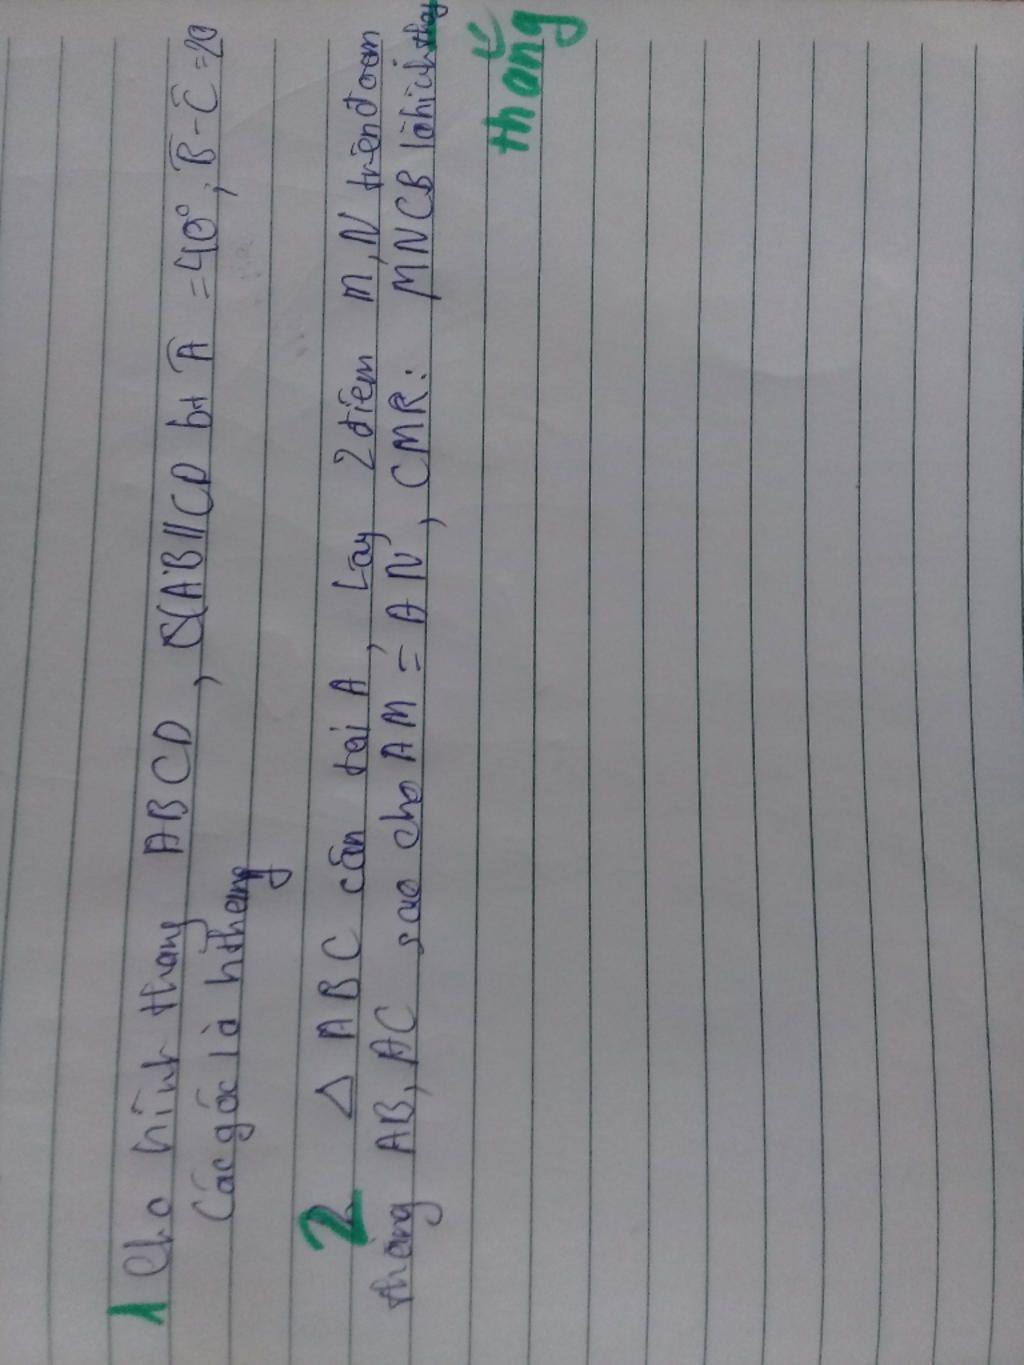 1 Cho hình thang ABCD, (AB//CD bt Â = 40°, B̂ - Ĉ = 20
Các góc là hthang
2 Δ ABC cân tại A, Lấy 2 điểm M, N trên đoạn
thẳng AB, AC sao cho AM = AN, CMR: MNCB là hình
thang